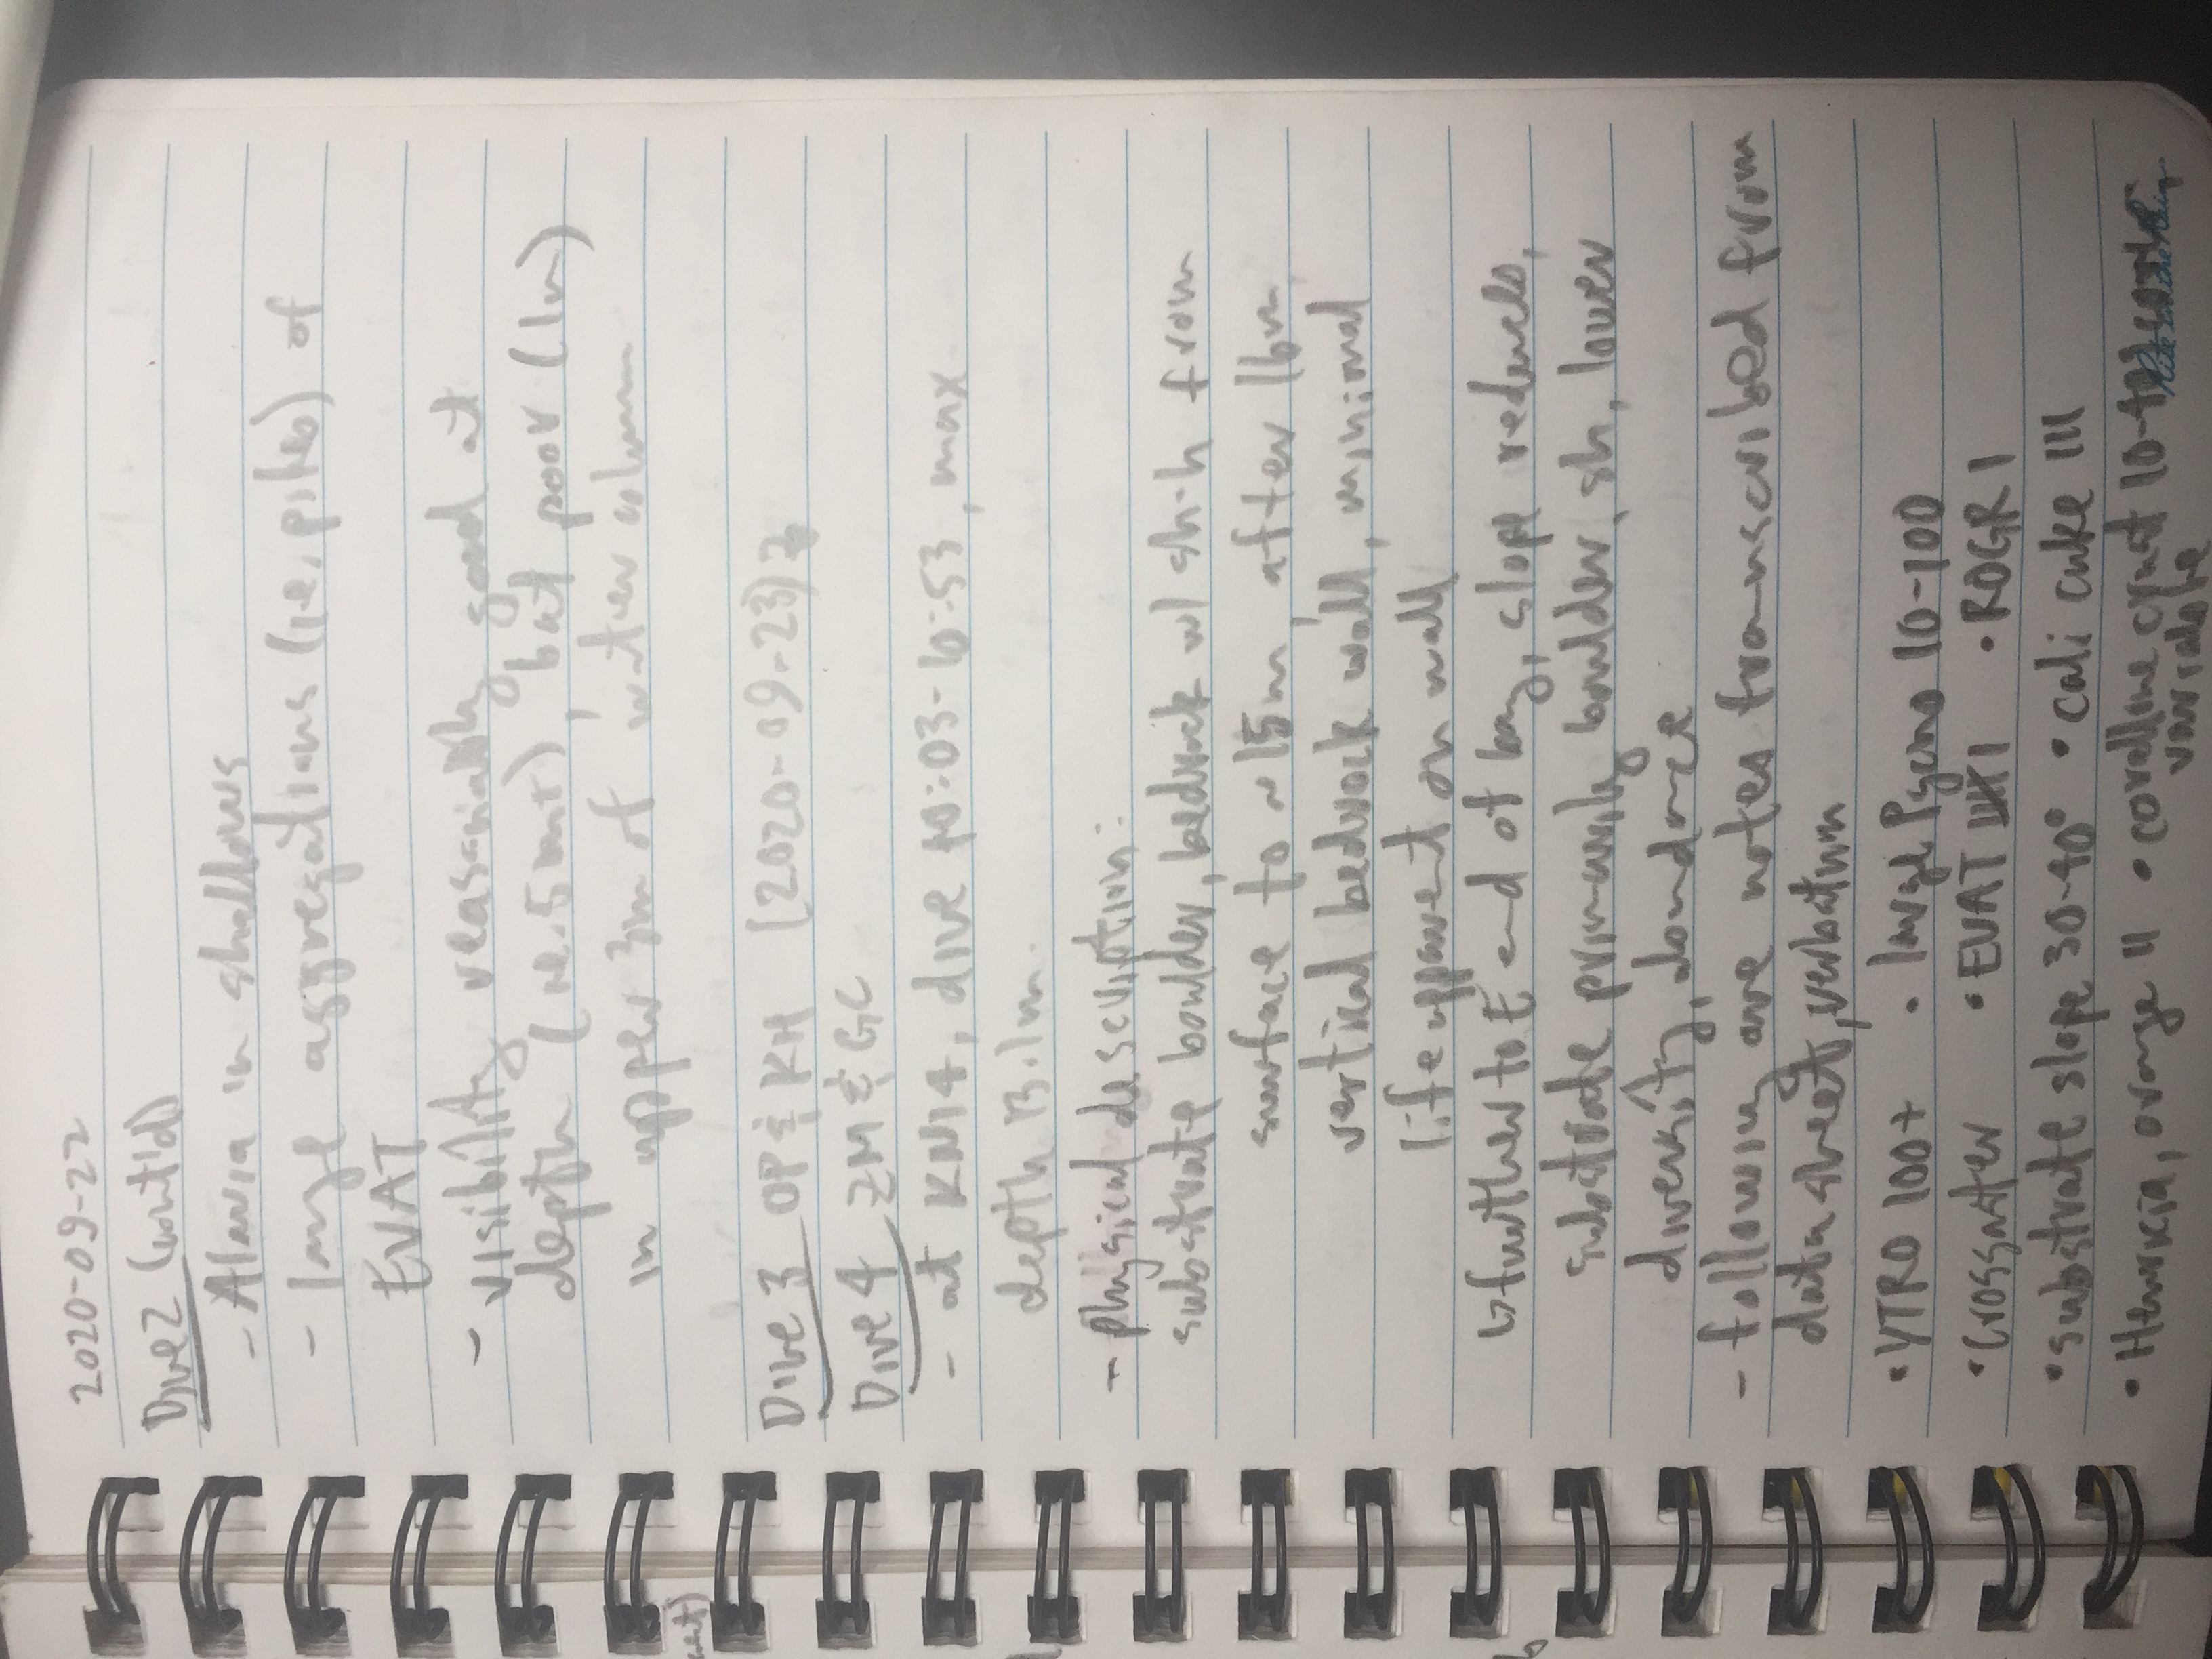 2020-09-22
Dive 2 (cont'd)
- Alaria in shallows
- large aggregations (i.e. piles) of
EVAT
- visibility reasonably good at
depth (i.e. 5 m+), but poor (1m)
in upper 3m of water column
Dive 3 OP & KH (2020-09-23)
Dive 4 ZM & GC
- at KN14, dive 10:03-10:53, max
depth 13.1m.
- physical description:
substrate boulder, bedrock w/ sh-h from
surface to ~15m, after 16m
vertical bedrock wall, minimal
life apparent on wall
↳ further to E end of bay, slope reduces,
substrate primarily boulder, sh, lower
diversity, abundance
- following are notes transcribed from
data sheet, verbatum
• YTRO 100+ • large Pycno 10-100
• Crossaster • EVAT 𝍸 I • ROGR I
• substrate slope 30-40° • cali cuke III
• Henricia, orange II • coralline crust
variable
Rite in the Rain